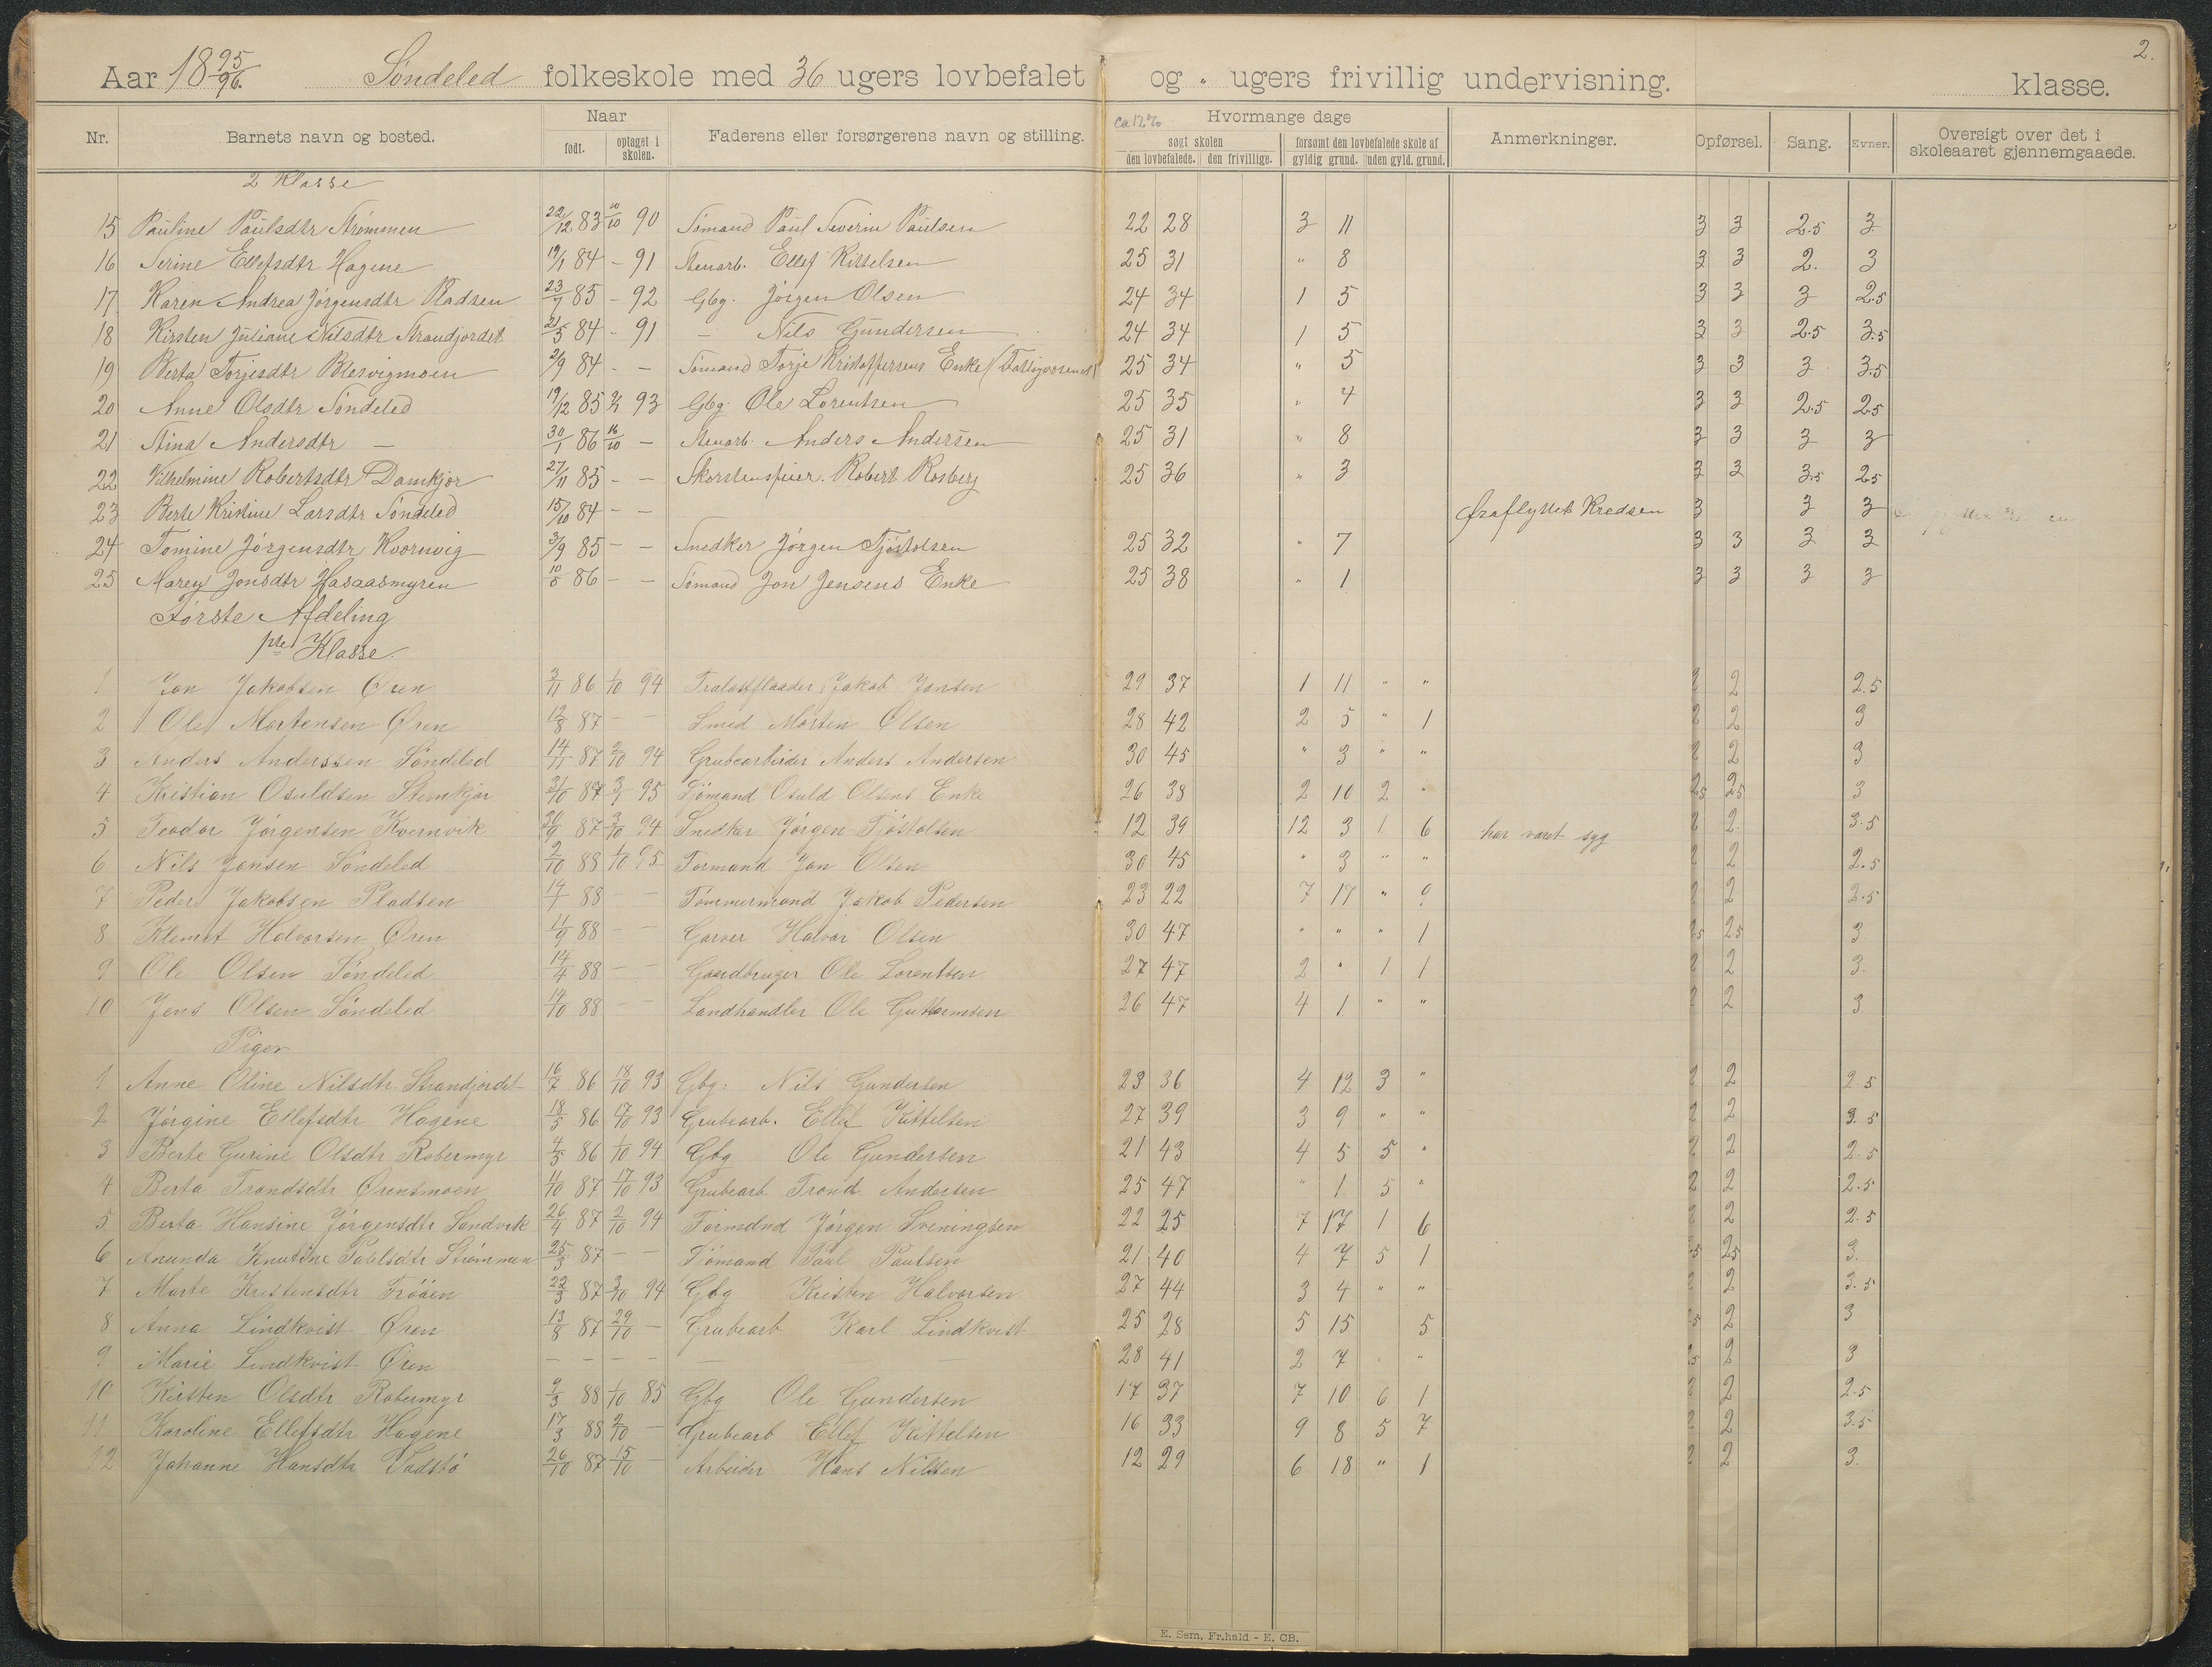 2.
Aar 18 95/96. Søndeled folkeskole med 36 ugers lovbefalet og " ugers frivillig undervisning. klasse.
Nr. Barnets navn og bosted. Naar født. optaget i skolen. Faderens eller forsørgerens navn og stilling. ca 12% Hvormange dage søgt skolen den lovbefalede. den frivillige. forsømt den lovbefalede skole af gyldig grund. uden gyld. grund. Anmerkninger. Opførsel. Sang. Evner. Oversigt over det i skoleaaret gjennemgaaede.
2 Klasse
15 Pauline Paulsdtr Strømmen 22/12 83 10/10 90 Sømand Paul Severin Paulsen 22 28 3 11 3 3 2.5 3
16 Serine Ellefsdtr Hagene 19/1 84 - 91 Stenarb. Ellef Kittelsen 25 31 " 8 3 3 2. 3
17 Karen Andrea Jørgensdtr Pladsen 23/7 85 - 92 Gbg. Jørgen Olsen 24 34 1 5 3 3 3 2.5
18 Kirsten Juliane Nilsdtr Strandjordet 21/5 84 - 91 - Nils Gundersen 24 34 1 5 3 3 2.5 3.5
19 Berta Torjesdtr Blesvigmoen 2/9 84 - - Sømand Torje Kristoffersens Enke (Fattigvæsenet) 25 34 " 5 3 3 3 3.5
20 Anne Olsdtr Søndeled 19/12 85 93 Gbg. Ole Lorentsen 25 35 " 4 3 3 2.5 2.5
21 Stina Andersdtr - 30/1 86 16/10 - Stenarb. Anders Andersen 25 31 " 8 3 3 3 3
22 Vilhelmine Robertsdtr Damkjør 27/11 85 - - Skorstensfeier. Robert Rosberg 25 36 " 3 3 3 3.5 2.5
23 Berte Kristine Larsdtr Søndeled 15/10 84 - - Fraflyttet Kredsen 3 3 3
24 Tomine Jørgensdtr Kvornvig 3/9 85 - - Snedker Jørgen Tjøstolsen 25 32 " 7 3 3 3 3
25 Marey Jonsdtr Hasaasmyren 86 - - Sømand Jon Jensens Enke 25 38 " 1 3 3 3 3
Første Afdeling
Klasse.
1 Jon Jakobsen Øren 3/11 86 1/10 94 Trælastflaader Jakob Jonsen 29 37 1 11 " " 2 2 2.5
2 Ole Mortensen Øren 12/8 87 - - Smed Morten Olsen 28 42 2 5 " 1 2 2 3
3 Anders Anderssen Søndeled 14/11 87 2/10 94 Grubearbeider Anders Andersen 30 45 " 3 " " 2 2 3
4 Kristian Osuldsen Stemkjær 87 95 Sømand Osuld Olsens Enke 26 38 2 10 2 " 2.5 2.5 3
5 Teodor Jørgensen Kvernvik 30/9 87 3/10 94 Snedker Jørgen Tjøstolsen 12 39 12 3 1 6 har været syg 2 2. 3.5
6 Nils Jonsen Søndeled 2/10 88 1/10 95 Formand Jon Olsen 30 45 " 3 " " 2 2 2.5
7 Peder Jakobsen Pladsen 14/1 88 - - Tømmermand Jakob Pedersen 23 22 7 17 " 9 2 2 2.5
8 Klemet Halvorsen Øren 11/9 88 - - Garver Halvor Olsen 30 47 " " " 1 2.5 2.5 3
9 Ole Olsen Søndeled 14/4 88 - - Gaardbruger Ole Lorentsen 27 47 2 " 1 1 2 2 3.
10 Jens Olsen Søndeled 14/10 88 - - Landhandler Ole Guttormsen 26 47 4 1 " " 2 2 3
Piger
1 Anne Oline Nilsdtr. Strandjordet 16/7 86 18/10 93 Gbg: Nils Gundersen 23 36 4 12 3 " 2 2 2.5
2 Jørgine Ellefsdtr Hagene 18/5 86 17/10 93 Grubearb. Ellef Kittelsen 27 39 3 9 " " 2 2 3.5
3 Berte Gurine Olsdtr Robermyr 4/5 86 1/10 94 Gbg Ole Gundersen 21 43 4 5 5 " 2 2 2.5
4 Berta Trondsdtr Ørensmoen 11/10 87 17/10 93 Grubearb. Trond Andersen 25 47 " 1 5 " 2 2 2.5
5 Berta Hansine Jørgensdtr Sandvik 26/4 87 2/10 94 Formand Jørgen Sveningsen 22 25 7 17 1 6 2 2 2.5
6 Ananda Knutine Paulsdtr Strømmen 25/3 87 - - Sømand Paul Paulsen 21 40 4 7 5 1 2.5 2.5 3.
7 Marte Kristensdtr Frøåen 22/3 87 3/10 94 Gbg Kristen Halvorsen 27 44 3 4 " " 2 2 3.5
8 Anna Lindkvist Øren 13/8 87 29/10 - Grubearb Karl Lindkvist 25 28 5 15 5 2.5 2 3
9 Marie Lindkvist Øren - - - - - 28 41 2 7 " 2.5 2 3
10 Kirsten Olsdtr Robermyr 9/3 88 1/10 85 Gbg Ole Gundersen 17 37 7 10 6 1 2 2 2.5
11 Karoline Ellefsdtr Hagene 17/3 88 2/10 - Grubearb Ellef Kittelsen 16 33 9 8 5 7 2 2 3.5
12 Johanne Hansdtr Vadstø 26/10 87 15/10 - Arbeider Hans Nilsen 12 29 6 18 " 1 2 2 3.
E. Sem, Fr.hald - E. CB.